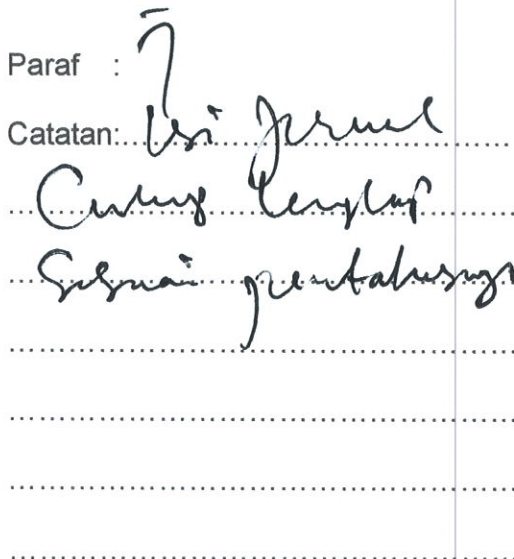 Paraf :
Catatan: Isi Jurnal
Cukup lengkap
Sesuai pentahusnya